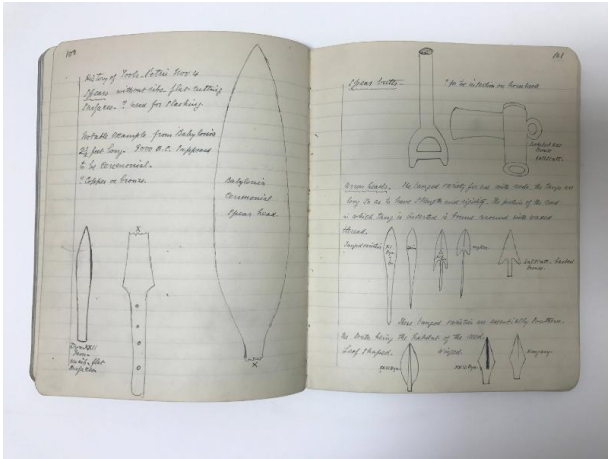 100
History of Tools - Petrie Nov. 4
Spears without ribs flat cutting
surfaces. ? used for slashing.
Notable example from Babylonia
2½ feet long. 4000 B.C. Supposed
to be ceremonial.
? Copper or bronze.
Babylonia
ceremonial
Spear head.
X
X
Dyn XXII
flat
101
Spear butts.
? for the insertion as
Socketed
Bronze
Arrow heads. The tanged variety for use with reeds the tangs are
long so as to give strength and rigidity. The portion of the reed
in which tang is inserted is bound around with waxed
thread.
Tanged varieties
barbed
Bronze.
These tanged varieties are essentially Southern
the South being the habitat of the reed.
Leaf shaped.
Winged.
XXVI Dyn.
XXVI Dyn
Hungary